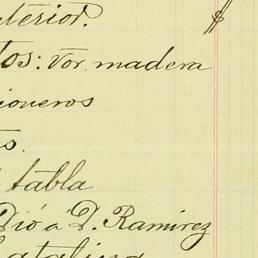 nterior. $
tos: Por madera
ioneros
s.
tabla
Dió a D. Ramirez
Catalina